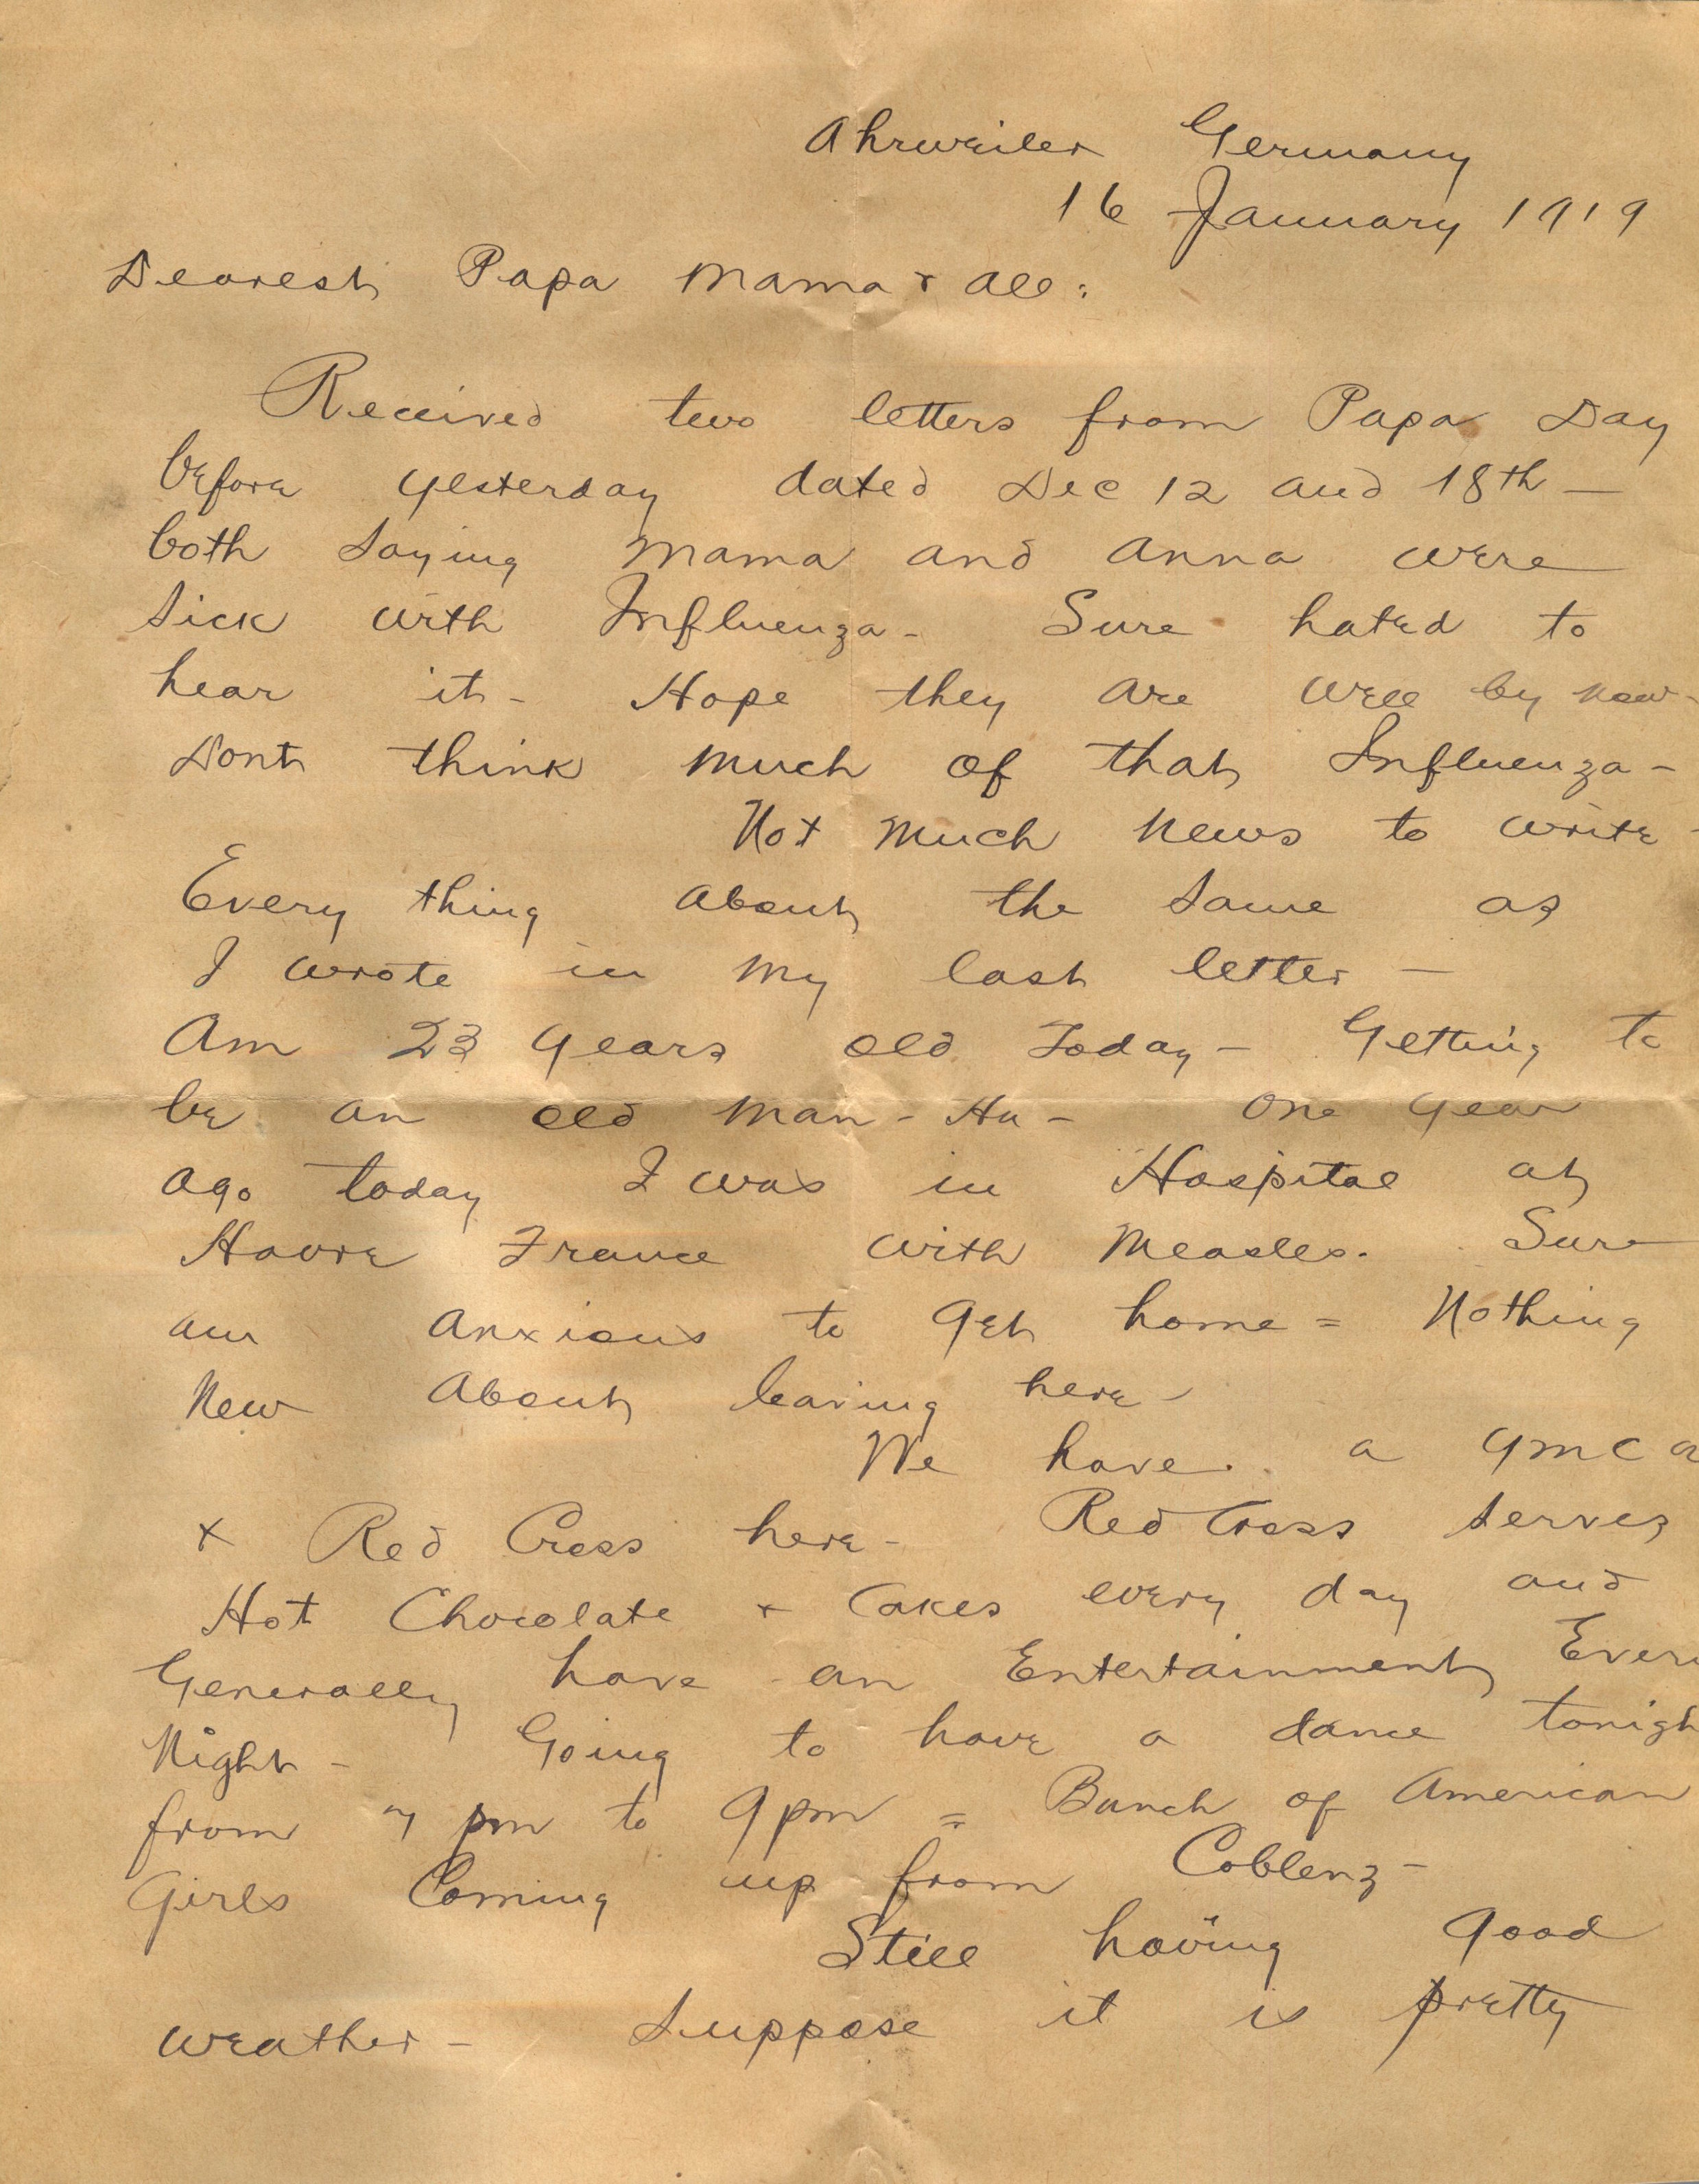 Ahrweiler Germany
16 January 1919
Dearest Papa Mama & All:
Received two letters from Papa Day
before yesterday dated Dec 12 and 18th -
both saying Mama and Anna were
sick with Influenza - Sure hated to
hear it - Hope they are well by now -
Dont think much of that Influenza -
Not much news to write -
Every thing about the same as
I wrote in my last letter -
Am 23 years old Today - Getting to
be an old man - Ha - One year
ago today I was in Hospital at
Havre France with Measles. Sure
am anxious to get home = Nothing
New About leaving here -
We have a YMCA
& Red Cross here - Red Cross serves
Hot Chocolate & Cakes every day and
Generally have an Entertainment Every
Night - Going to have a dance tonigh
from 7 pm to 9 pm = Bunch of American
Girls Coming up from Coblenz -
Still having good
weather - Suppose it is pretty